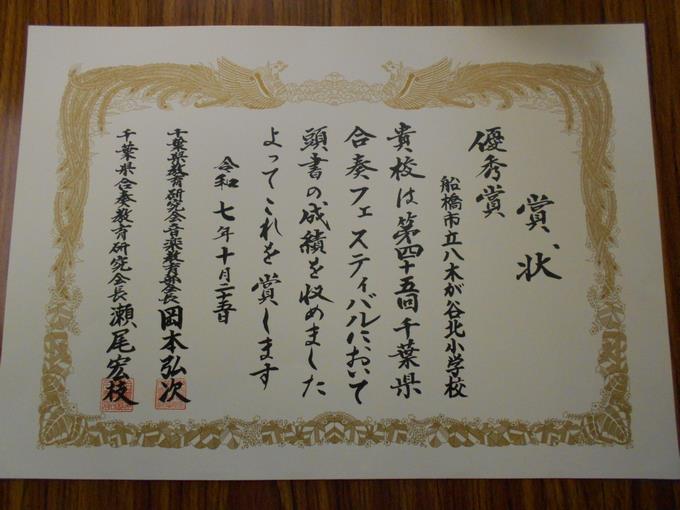 賞状
優秀賞
船橋市立八木が谷北小学校
貴校は第四十五回千葉県
合奏フェスティバルにおいて
頭書の成績を収めました
よってこれを賞します
令和七年十月二十五日
千葉県教育研究会音楽教育部会長 岡本弘次
千葉県合奏教育研究会長 瀬尾宏枝